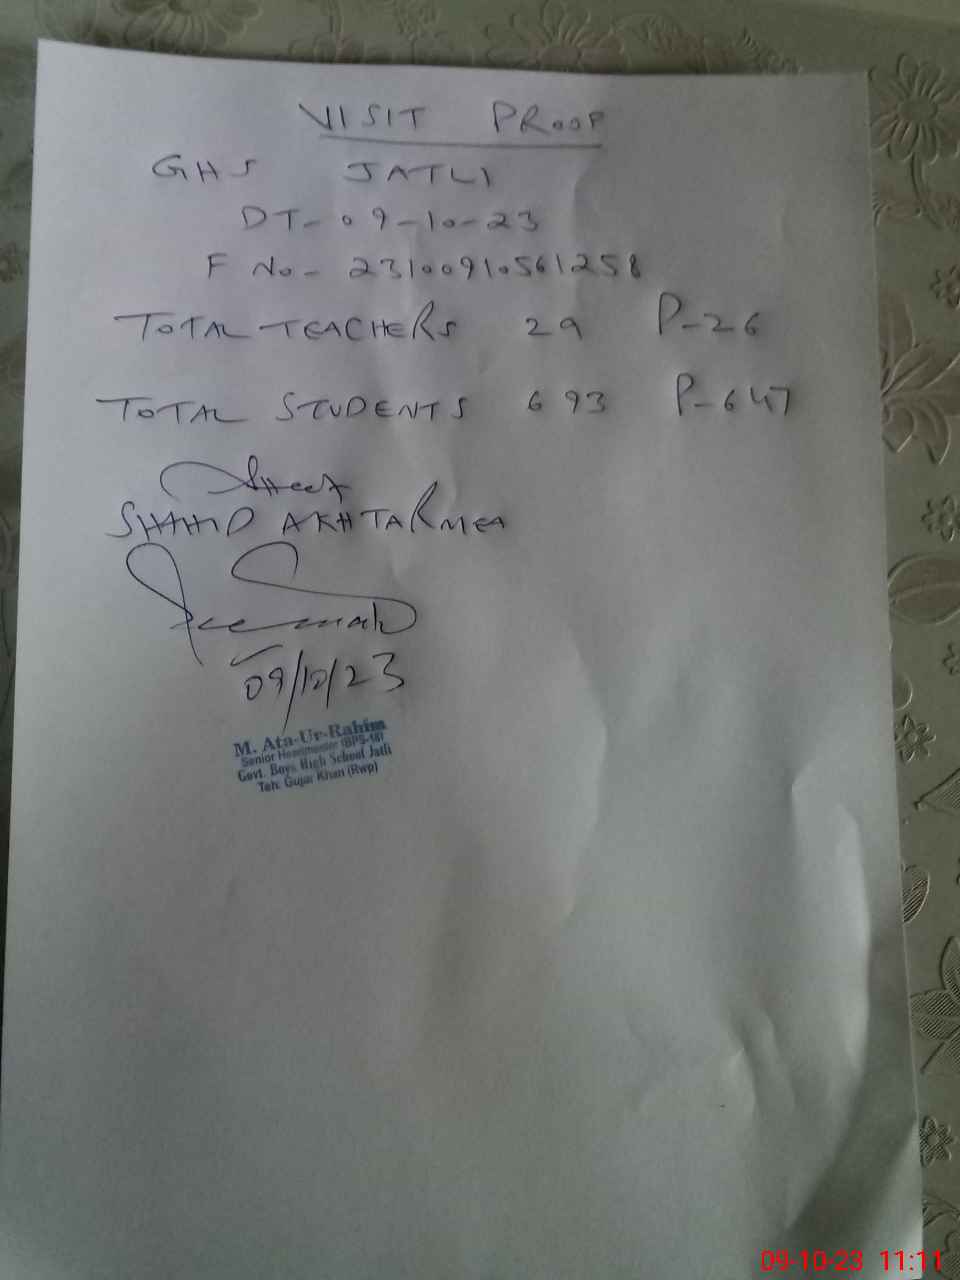 VISIT PROOF
GHS JATLI
DT- 09-10-23
F No- 23100910561258
TOTAL TEACHERS 29 P-26
TOTAL STUDENTS 693 P-647
SHAHID AKHTAR MEA
09/10/23
M. Ata-Ur-Rahim
Senior Headmaster (BPS-18)
Govt. Boys High School Jatli
Teh: Gujar Khan (Rwp)
09-10-23 11:11